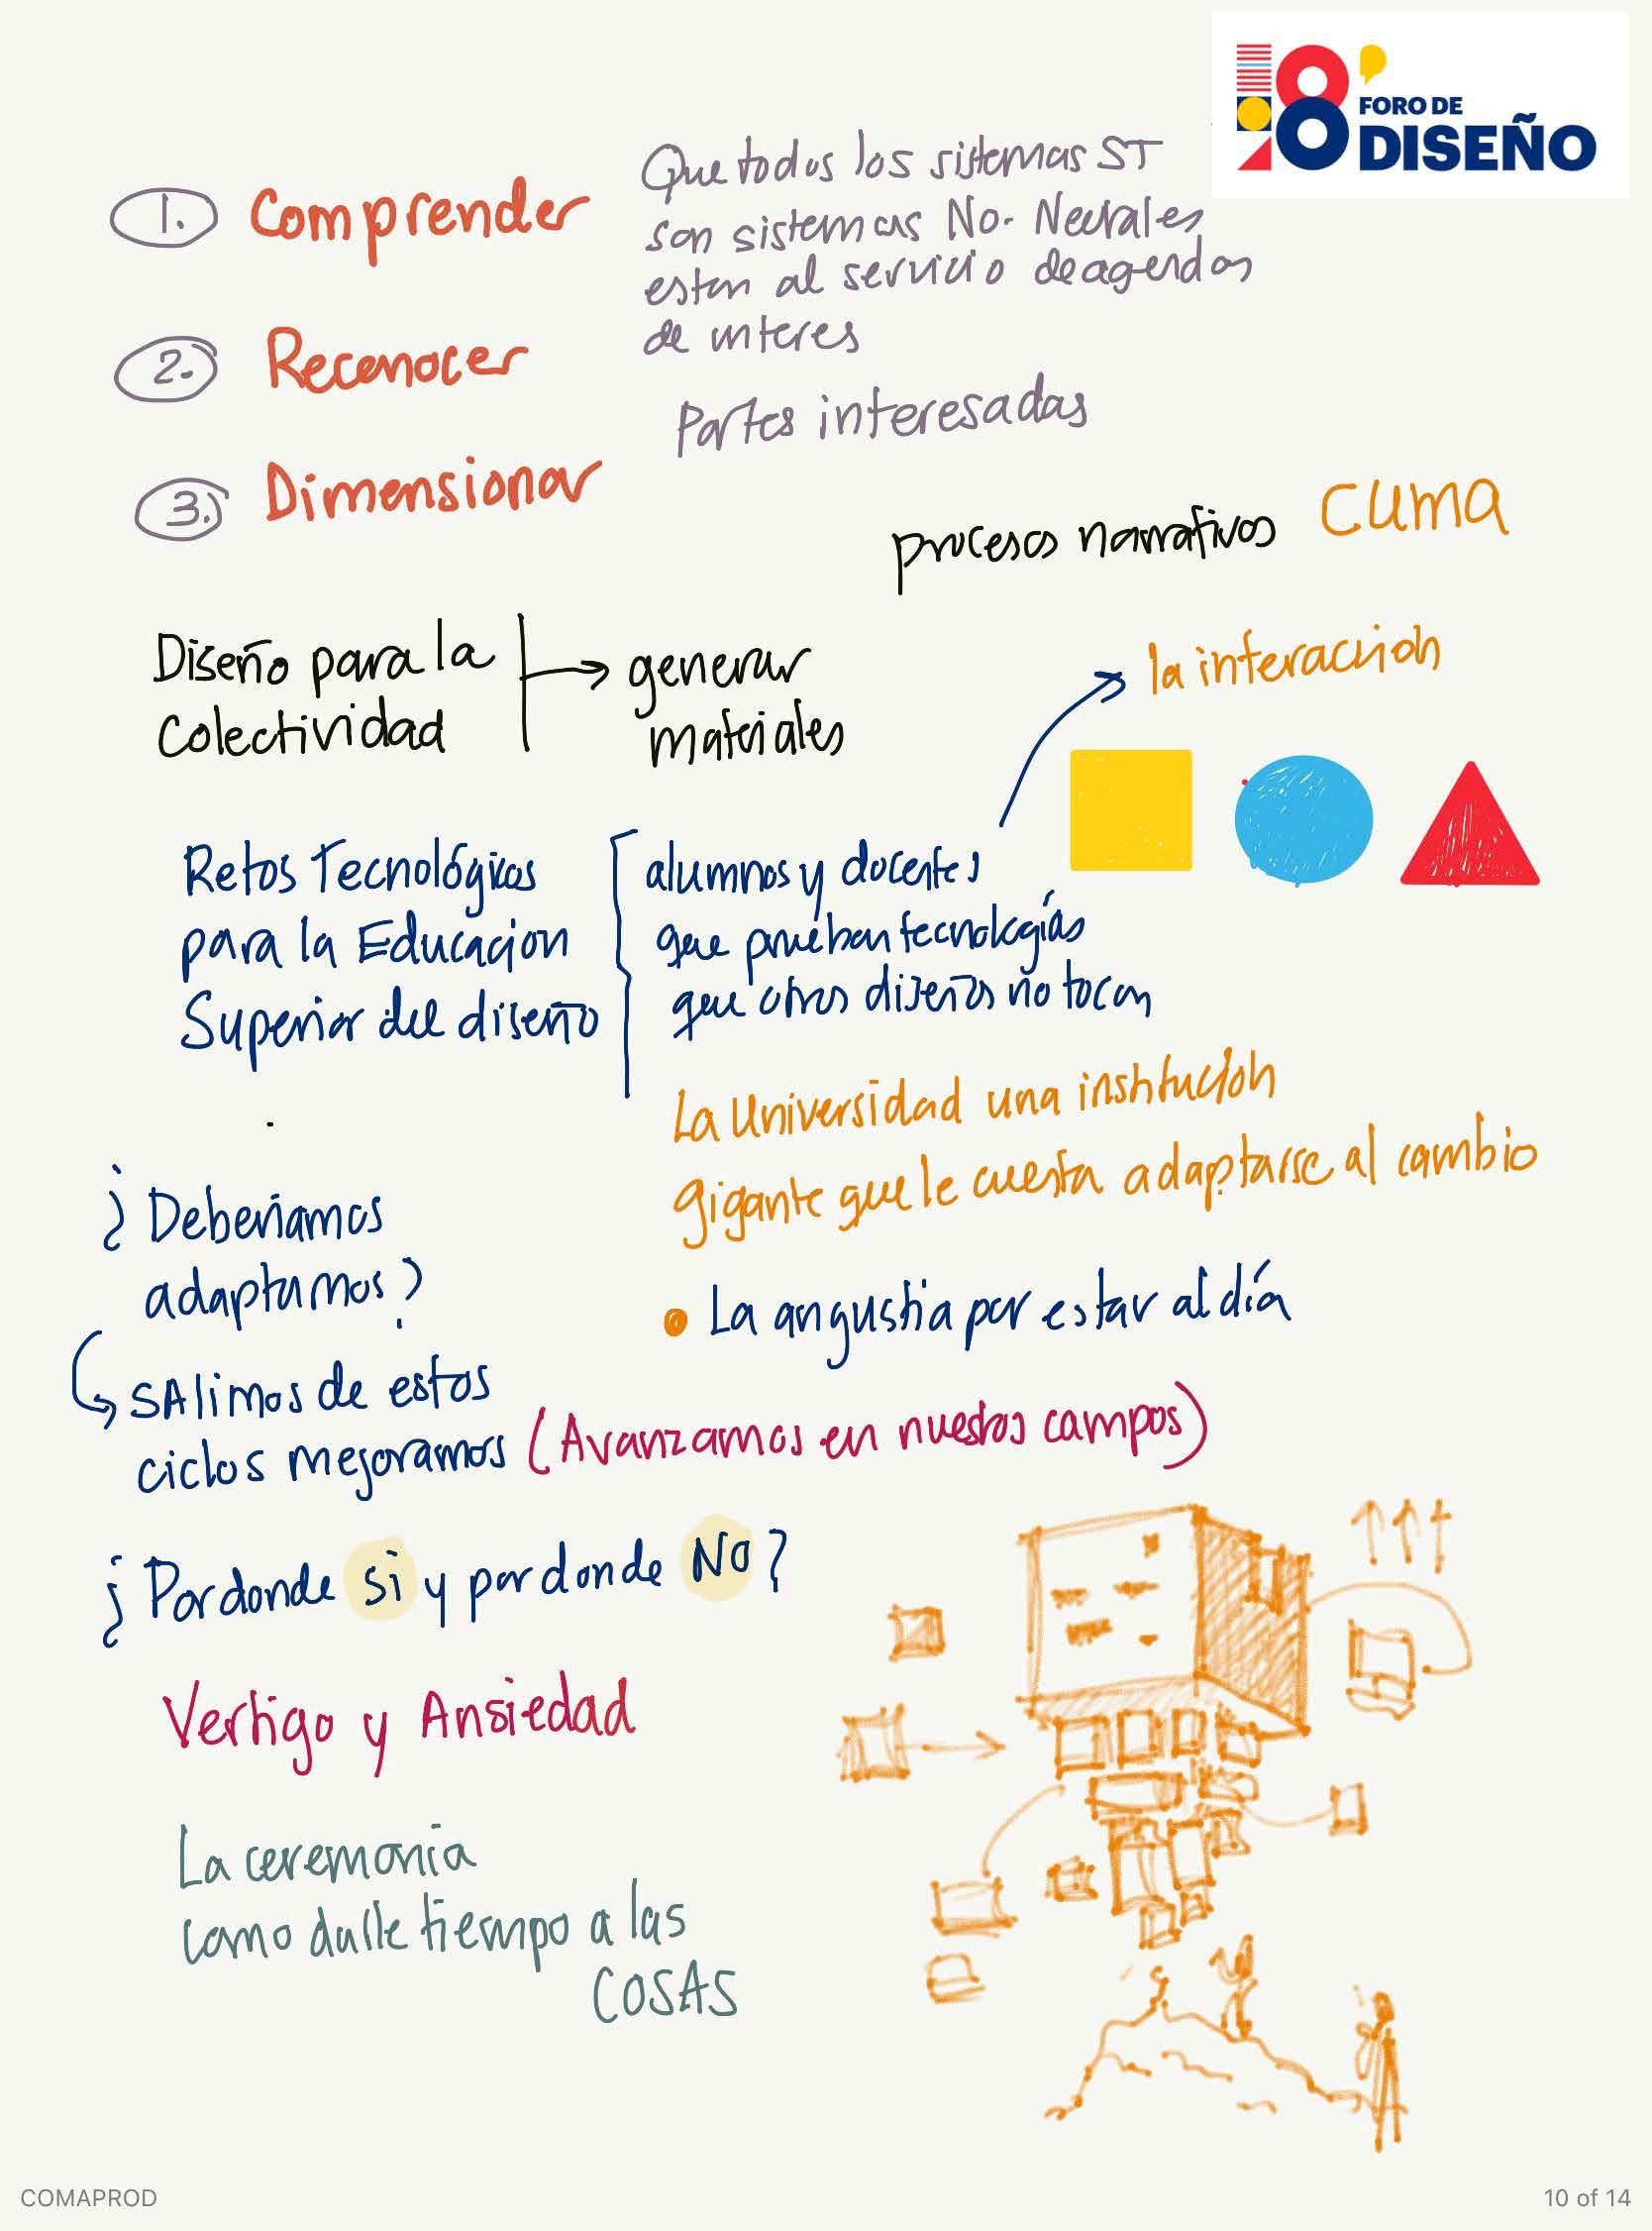 8º
FORO DE
DISEÑO
1. Comprender
Que todos los sistemas ST
son sistemas No. Neutrales
estan al servicio de agendas
de interes
2. Reconocer
Partes interesadas
3. Dimensionar
procesos narrativos CUMA
Diseño para la
Colectividad
generar
materiales
la interacion
Retos Tecnológicos
para la Educacion
Superior del diseño
alumnos y docentes
que prueban tecnologías
que otros diseños no tocan
La Universidad una institución
gigante que le cuesta adaptarse al cambio
¿Deberiamos
adaptarnos?
• La angustia por estar al día
SAlimos de estos
ciclos mejoramos (Avanzamos en nuestros campos)
¿Por donde si y por donde No?
Vertigo y Ansiedad
La ceremonia
como darle tiempo a las
COSAS
COMAPROD
10 of 14